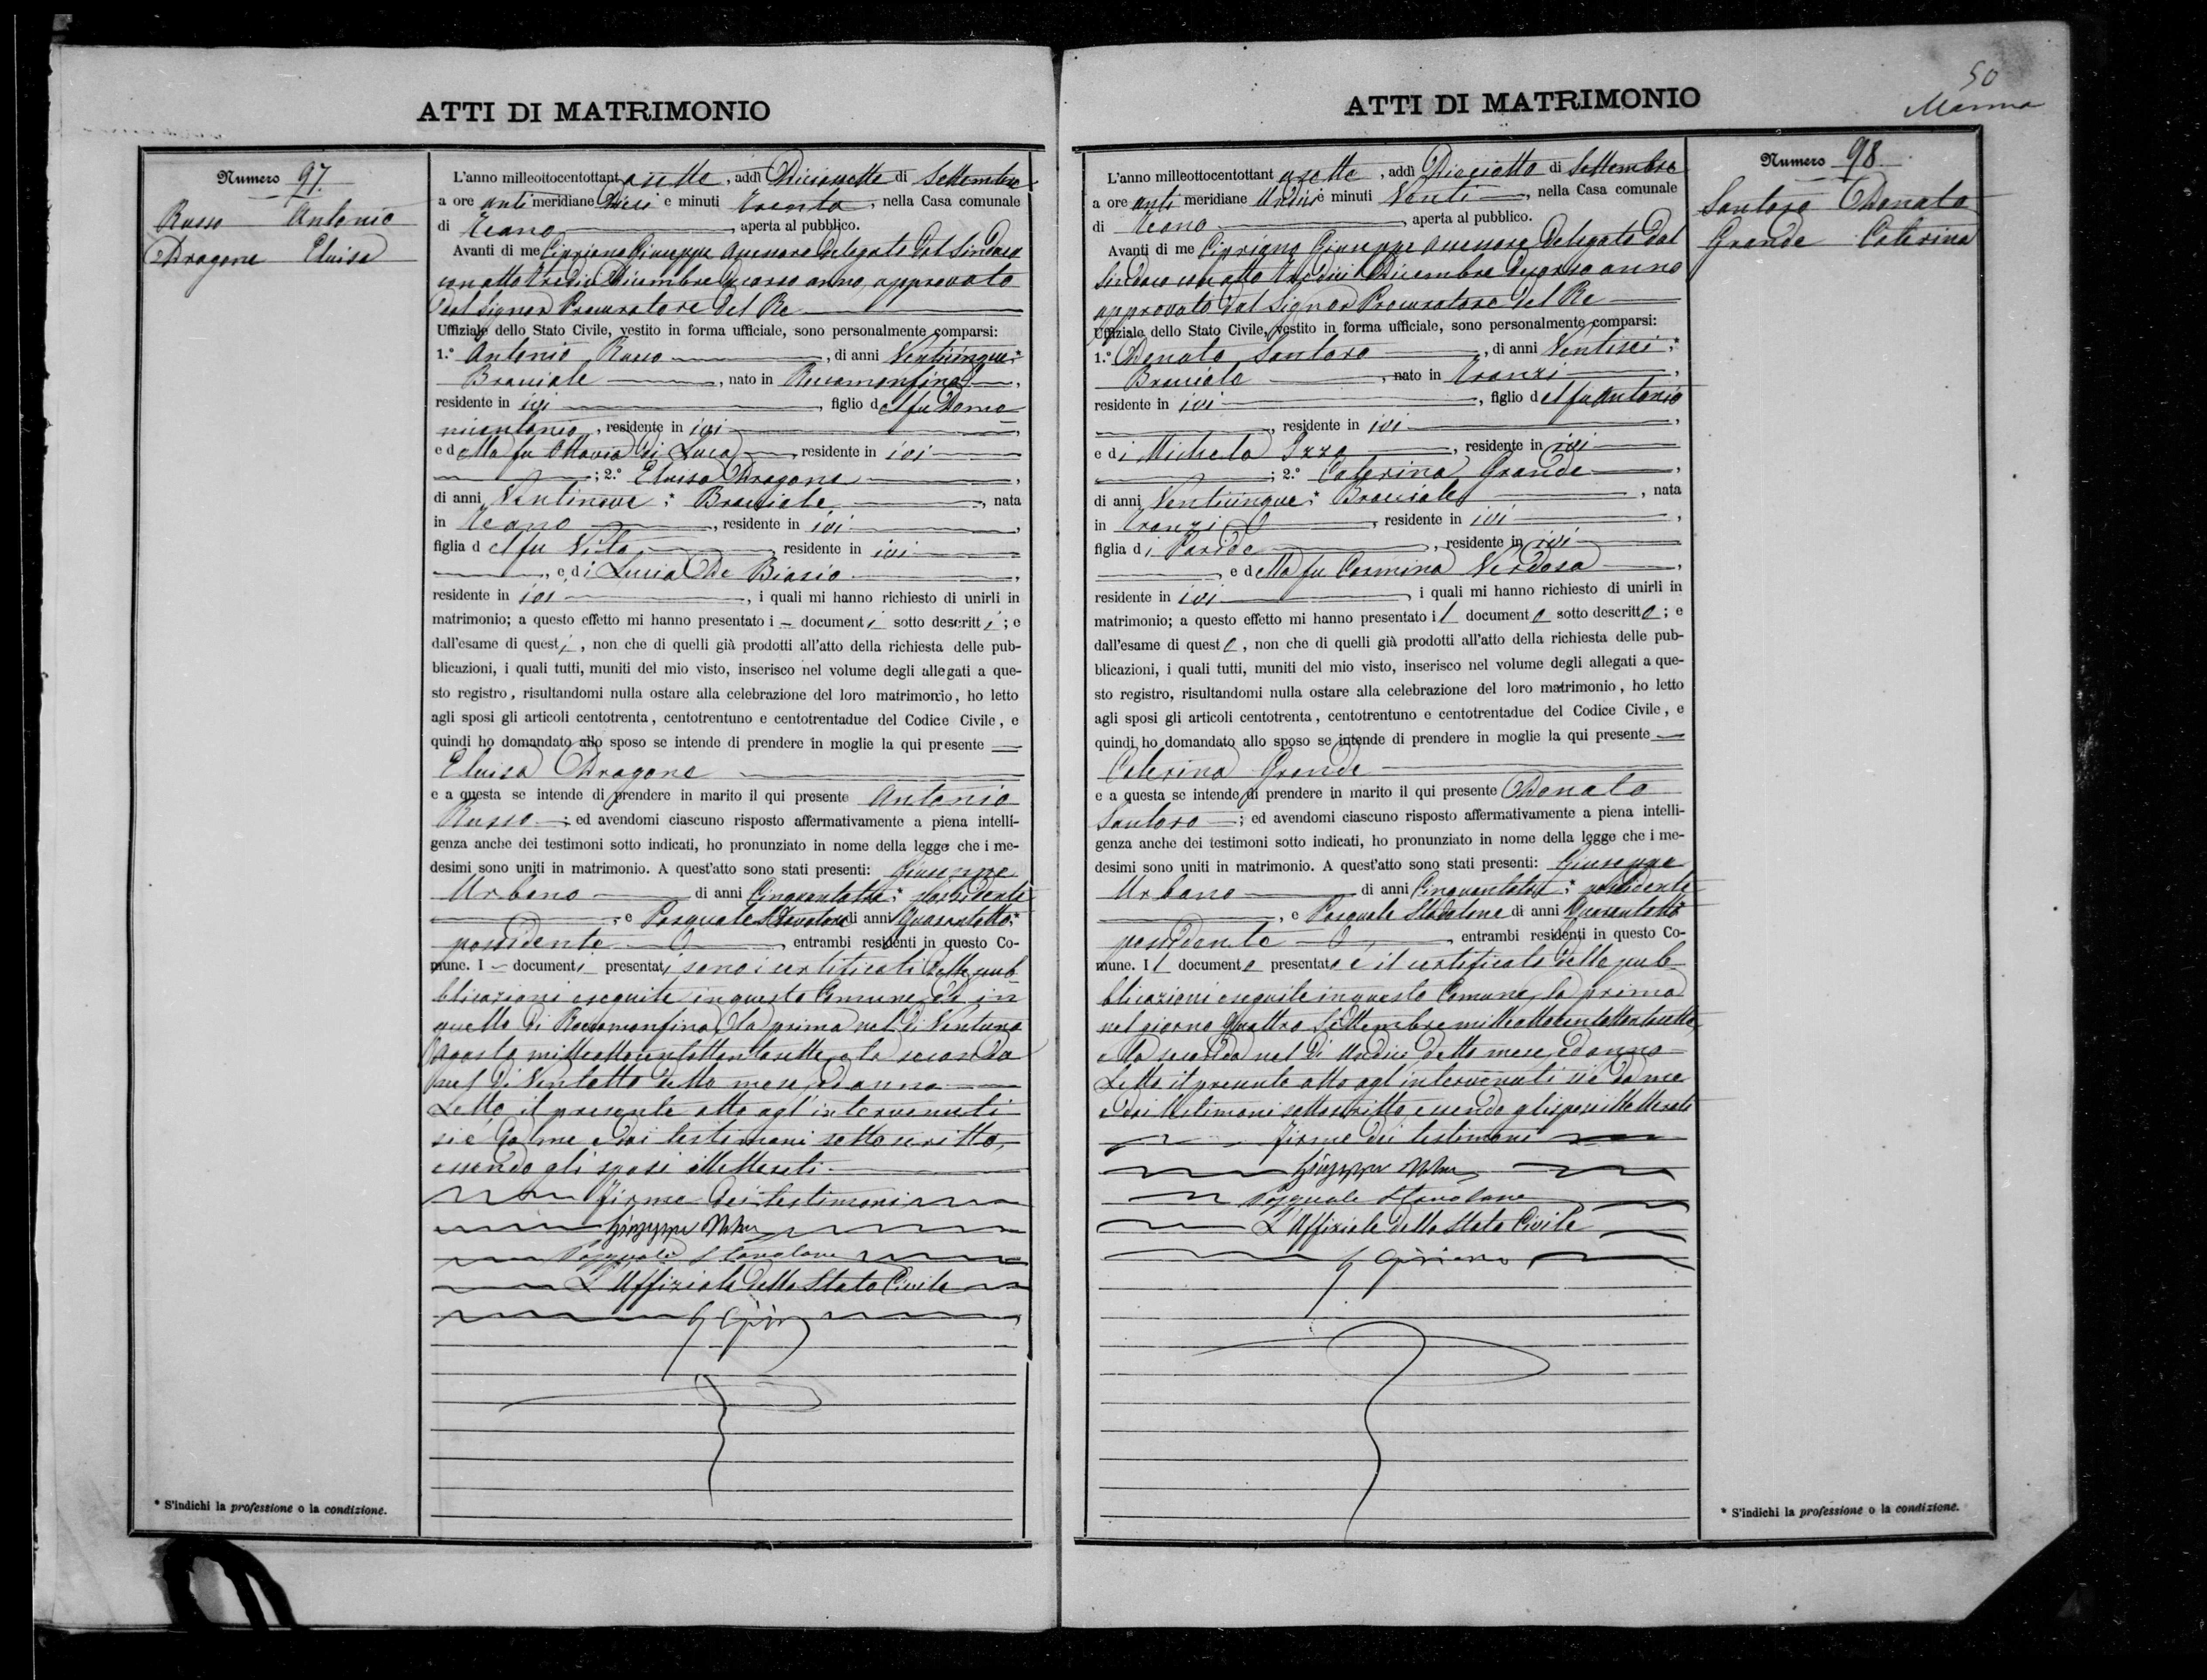 ATTI DI MATRIMONIO
Numero 97.
Russo Antonio
Dragone Eluisa
L'anno milleottocentottantasette, addì Diciasette di Settembre
a ore antimeridiane Dieci e minuti Trenta, nella Casa comunale
di Teano, aperta al pubblico.
Avanti di me Cipriano Giuseppe Assessore delegato dal Sindaco
con atto tredici Dicembre scorso anno, approvato
dal Signor Procuratore del Re
Uffiziale dello Stato Civile, vestito in forma ufficiale, sono personalmente comparsi:
1.° Antonio Russo, di anni Venticinque,*
Bracciale, nato in Roccamonfina,
residente in ivi, figlio del fu Dome
nicantonio, residente in ivi,
e della fu Ottavia di Luca, residente in ivi
; 2.° Eluisa Dragone,
di anni Ventinove:* Bracciale, nata
in Teano, residente in ivi,
figlia del fu Vito, residente in ivi
, e di Lucia De Biasio,
residente in ivi, i quali mi hanno richiesto di unirli in
matrimonio; a questo effetto mi hanno presentato i documenti sotto descritti; e
dall'esame di questi, non che di quelli già prodotti all'atto della richiesta delle pub-
blicazioni, i quali tutti, muniti del mio visto, inserisco nel volume degli allegati a que-
sto registro, risultandomi nulla ostare alla celebrazione del loro matrimonio, ho letto
agli sposi gli articoli centotrenta, centotrentuno e centotrentadue del Codice Civile, e
quindi ho domandato allo sposo se intende di prendere in moglie la qui presente
Eluisa Dragone
e a questa se intende di prendere in marito il qui presente Antonio
Russo; ed avendomi ciascuno risposto affermativamente a piena intelli-
genza anche dei testimoni sotto indicati, ho pronunziato in nome della legge che i me-
desimi sono uniti in matrimonio. A quest'atto sono stati presenti: Giuseppe
Urbano di anni Cinquantatre:* possidente
, e Pasquale Stavolone di anni Quarantotto,*
possidente, entrambi residenti in questo Co-
mune. I documenti presentati sono i certificati delle pub
blicazioni eseguite in questo Comune, ed in
quello di Roccamonfina, la prima nel dì Ventuno
Agosto milleottocentottantasette, e la seconda
nel dì Ventotto detto mese, ed anno
Letto il presente atto agl'intervenuti
si è da me e dai testimoni sottoscritto,
essendo gli sposi illetterati.
Firme dei testimoni
Giuseppe Urbano
Pasquale Stavolone
L'Uffiziale dello Stato Civile
G Cipriano
* S'indichi la professione o la condizione.
50
ATTI DI MATRIMONIO
Numero 98.
Santoro Donato
Grande Caterina
L'anno milleottocentottantasette, addì Diciotto di Settembre
a ore antimeridiane Undici e minuti Venti, nella Casa comunale
di Teano, aperta al pubblico.
Avanti di me Cipriano Giuseppe Assessore delegato dal
Sindaco con atto tredici Dicembre scorso anno
approvato dal Signor Procuratore del Re
Uffiziale dello Stato Civile, vestito in forma ufficiale, sono personalmente comparsi:
1.° Donato Santoro, di anni Ventisei,*
Bracciale, nato in Tranzi,
residente in ivi, figlio del fu Antonio
, residente in ivi,
e di Michela Izzo, residente in ivi
; 2.° Caterina Grande,
di anni Venticinque,* Bracciale, nata
in Tranzi, residente in ivi,
figlia di Paride, residente in ivi
, e della fu Carmina Verdosa,
residente in ivi, i quali mi hanno richiesto di unirli in
matrimonio; a questo effetto mi hanno presentato il documento sotto descritto; e
dall'esame di questo, non che di quelli già prodotti all'atto della richiesta delle pub-
blicazioni, i quali tutti, muniti del mio visto, inserisco nel volume degli allegati a que-
sto registro, risultandomi nulla ostare alla celebrazione del loro matrimonio, ho letto
agli sposi gli articoli centotrenta, centotrentuno e centotrentadue del Codice Civile, e
quindi ho domandato allo sposo se intende di prendere in moglie la qui presente
Caterina Grande
e a questa se intende di prendere in marito il qui presente Donato
Santoro; ed avendomi ciascuno risposto affermativamente a piena intelli-
genza anche dei testimoni sotto indicati, ho pronunziato in nome della legge che i me-
desimi sono uniti in matrimonio. A quest'atto sono stati presenti: Giuseppe
Urbano di anni Cinquantatre:* possidente
, e Pasquale Stavolone di anni Quarantotto
possidente, entrambi residenti in questo Co-
mune. Il documento presentato è il certificato delle pub
blicazioni eseguite in questo Comune, la prima
nel giorno quattro Settembre milleottocentottantasette,
e la seconda nel dì Undici detto mese, ed anno
Letto il presente atto agl'intervenuti si è da me
e dai testimoni sottoscritto essendo gli sposi illetterati
Firme dei testimoni
Giuseppe Urbano
Pasquale Stavolone
L'Uffiziale dello Stato Civile
G Cipriano
* S'indichi la professione o la condizione.